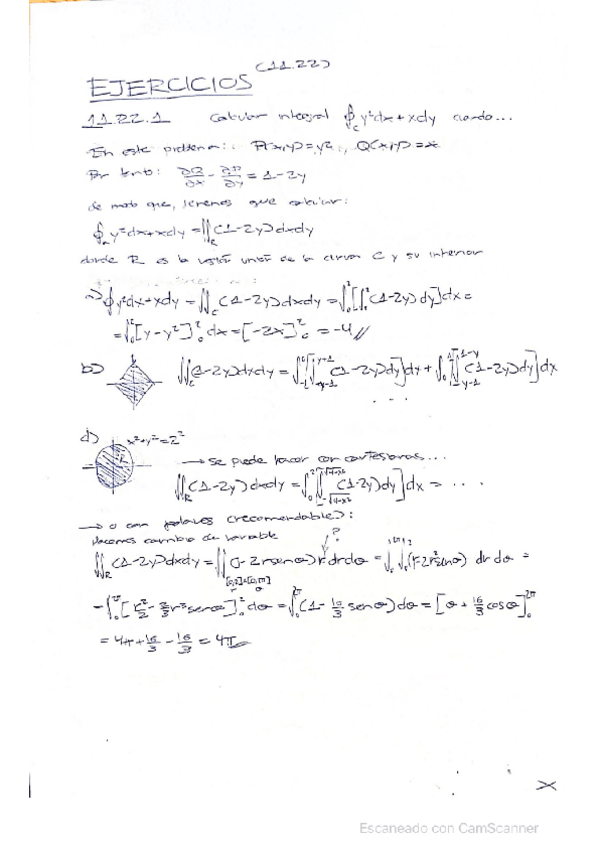 (11.22)
EJERCICIOS
11.22.1 Calcular integral ∮_C y²dx + xdy cuando...
En este problema: P(x,y)=y², Q(x,y)=x
Por tanto: ∂Q/∂x - ∂P/∂y = 1-2y
de modo que, tenemos que calcular:
∮ y²dx+xdy = ∬_R (1-2y)dxdy
donde R es la unión de la curva C y su interior
a) ∮y²dx+xdy = ∬_C (1-2y)dxdy = ∫₀²[∫₀²(1-2y)dy]dx =
= ∫₀²[y-y²]₀² dx = [-2x]₀² = -4
b) ∬_C (1-2y)dxdy = ∫ [∫ (1-2y)dy]dy + ∫ [∫ (1-2y)dy]dx
...
d) x²+y²=2²
→ se puede hacer con cartesianas...
∬_R (1-2y)dxdy = ∫ [∫ (1-2y)dy]dx = ...
→ o con polares (recomendable):
Hacemos cambio de variable ?
∬_R (1-2y)dxdy = ∬ (1-2rsenθ)r drdθ = ∫∫ (r-2r²senθ) dr dθ =
= ∫ [r²/2 - 2/3 r³senθ]₀² dθ = ∫ ( - 16/3 senθ)dθ = [θ + 16/3 cosθ]₀^2π
= 4π + 16/3 - 16/3 = 4π
Escaneado con CamScanner